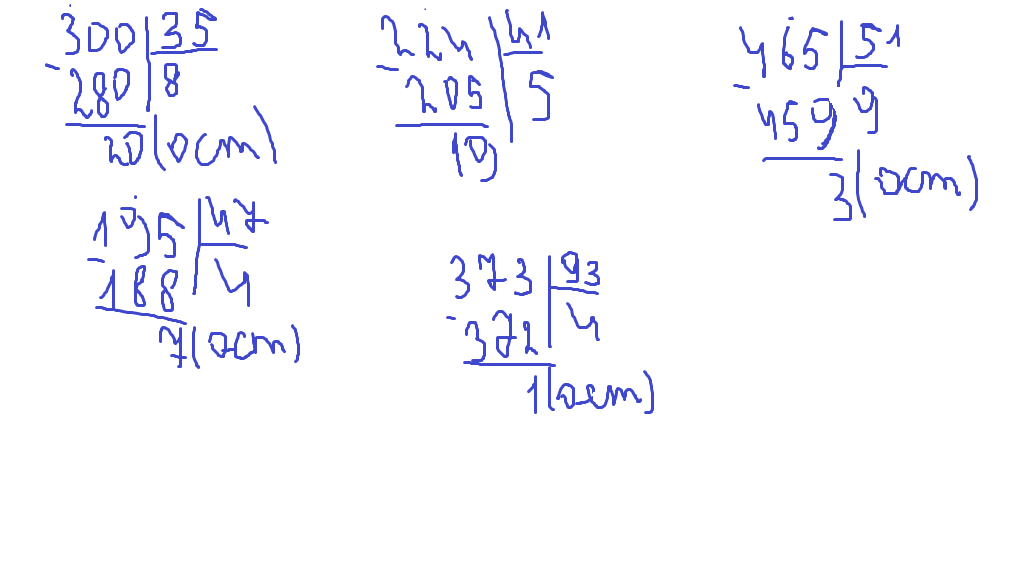 300 35
- 280 8
20 (ост)
224 41
- 205 5
19
465 51
- 459 9
3 (ост)
195 47
- 188 4
7 (ост)
373 93
- 372 4
1 (ост)